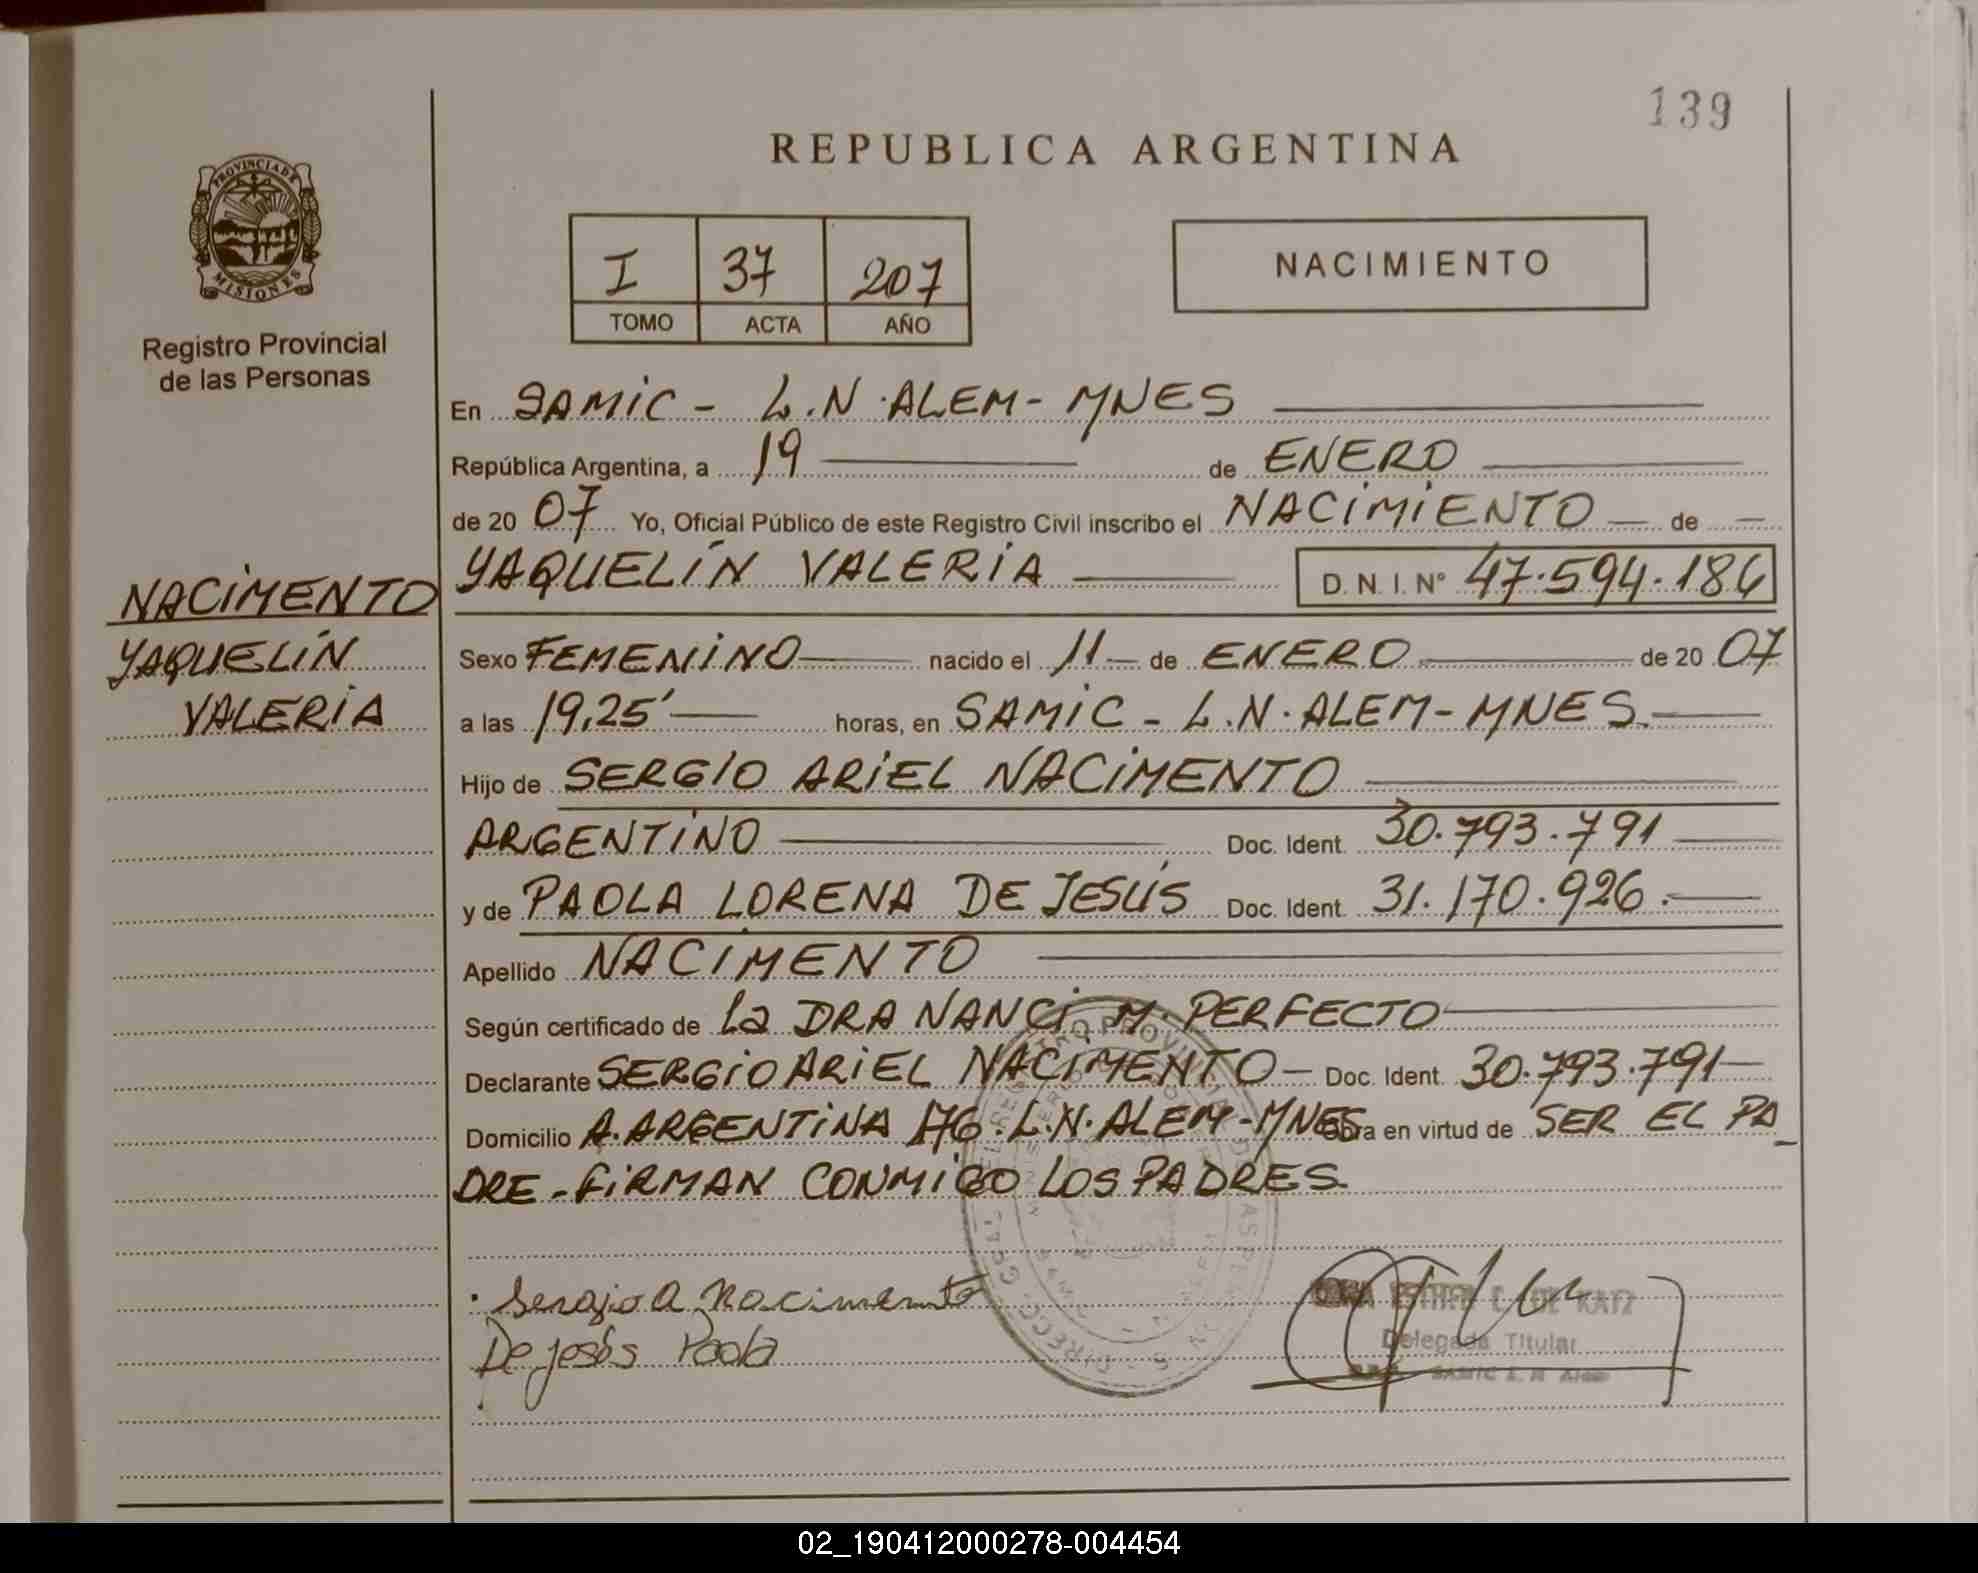 139
REPUBLICA ARGENTINA
PROVINCIA DE
MISIONES
Registro Provincial
de las Personas
I 37 207
TOMO ACTA AÑO
NACIMIENTO
En SAMIC - L.N. ALEM - MNES
República Argentina, a 19 de ENERO
de 20 07 Yo, Oficial Público de este Registro Civil inscribo el NACIMIENTO de
YAQUELÍN VALERIA D.N.I. Nº 47.594.186
NACIMENTO
YAQUELÍN
VALERIA
Sexo FEMENINO nacido el 11 de ENERO de 20 07
a las 19,25' horas, en SAMIC - L.N. ALEM - MNES.
Hijo de SERGIO ARIEL NACIMENTO
ARGENTINO Doc. Ident. 30.793.791
y de PAOLA LORENA DE JESÚS Doc. Ident. 31.170.926.
Apellido NACIMENTO
Según certificado de la DRA NANCI M. PERFECTO
Declarante SERGIO ARIEL NACIMENTO - Doc. Ident. 30.793.791
Domicilio A. ARGENTINA 176. L.N. ALEM - MNES Obra en virtud de SER EL PA_
DRE - FIRMAN CONMIGO LOS PADRES.
Sergio A Nacimento
De Jesús Paola
ESTHER C. DE KATZ
Delegada Titular
SAMIC L. N. Alem
02_190412000278-004454